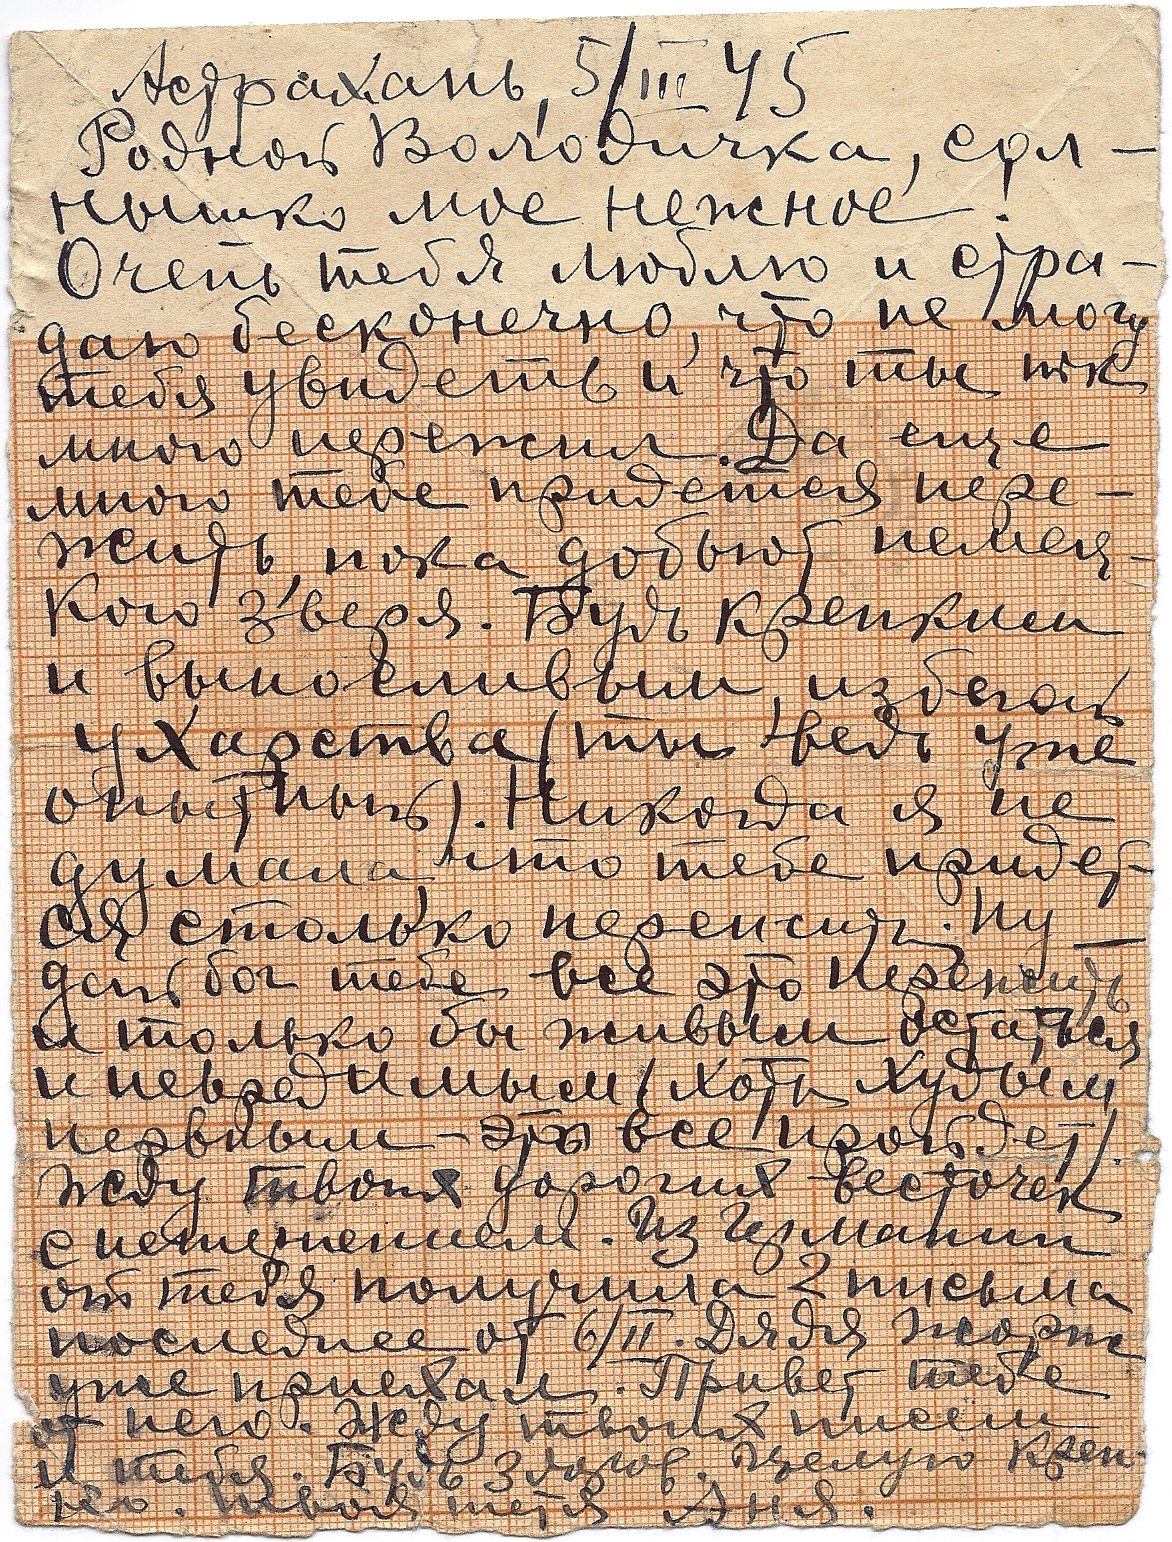 Астрахань, 5/III 45
Родной Володичка, сол-
нышко мое нежное!
Очень тебя люблю и стра-
даю бесконечно, что не могу
тебя увидеть и что ты так
много пережил. Да еще
много тебе придется пере-
жить, пока добьют немец-
кого зверя. Будь крепким
и выносливым, избегай
ухарства (ты ведь уже
опытный). Никогда я не
думала, что тебе придет-
ся столько пережить. Ну
дай бог тебе все это пережить
и только бы живым остаться
и невредимым (хоть худым
нервным – это все пройдет).
Жду твоих дорогих весточек
с нетерпением. Из Германии
от тебя получила 2 письма
последнее от 6/II. Дядя Жорж
уже приехал. Привет тебе
от него. Жду твоих писем
и тебя. Будь здоров. Целую креп-
ко. Твоя тетя Аня.